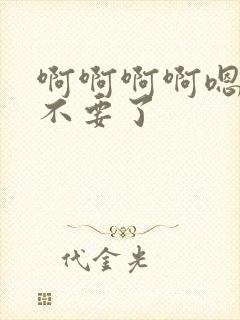 啊啊啊啊嗯
不要了
代金光